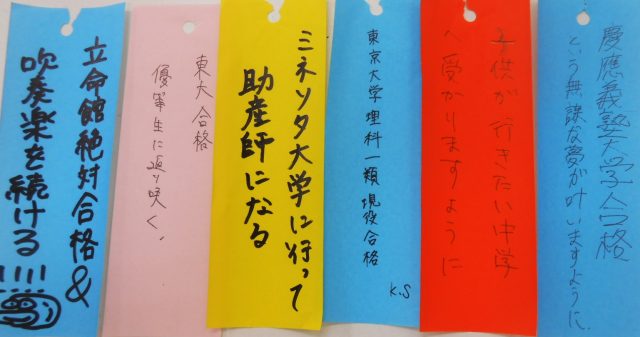 慶應義塾大学合格
という無謀な夢が叶いますように.
子供が行きたい中学
へ受かりますように
東京大学理科一類現役合格
K.S
ミネソタ大学に行って
助産師になる
東大合格
優等生に返り咲く.
立命館絶対合格&
吹奏楽を続ける!!!!